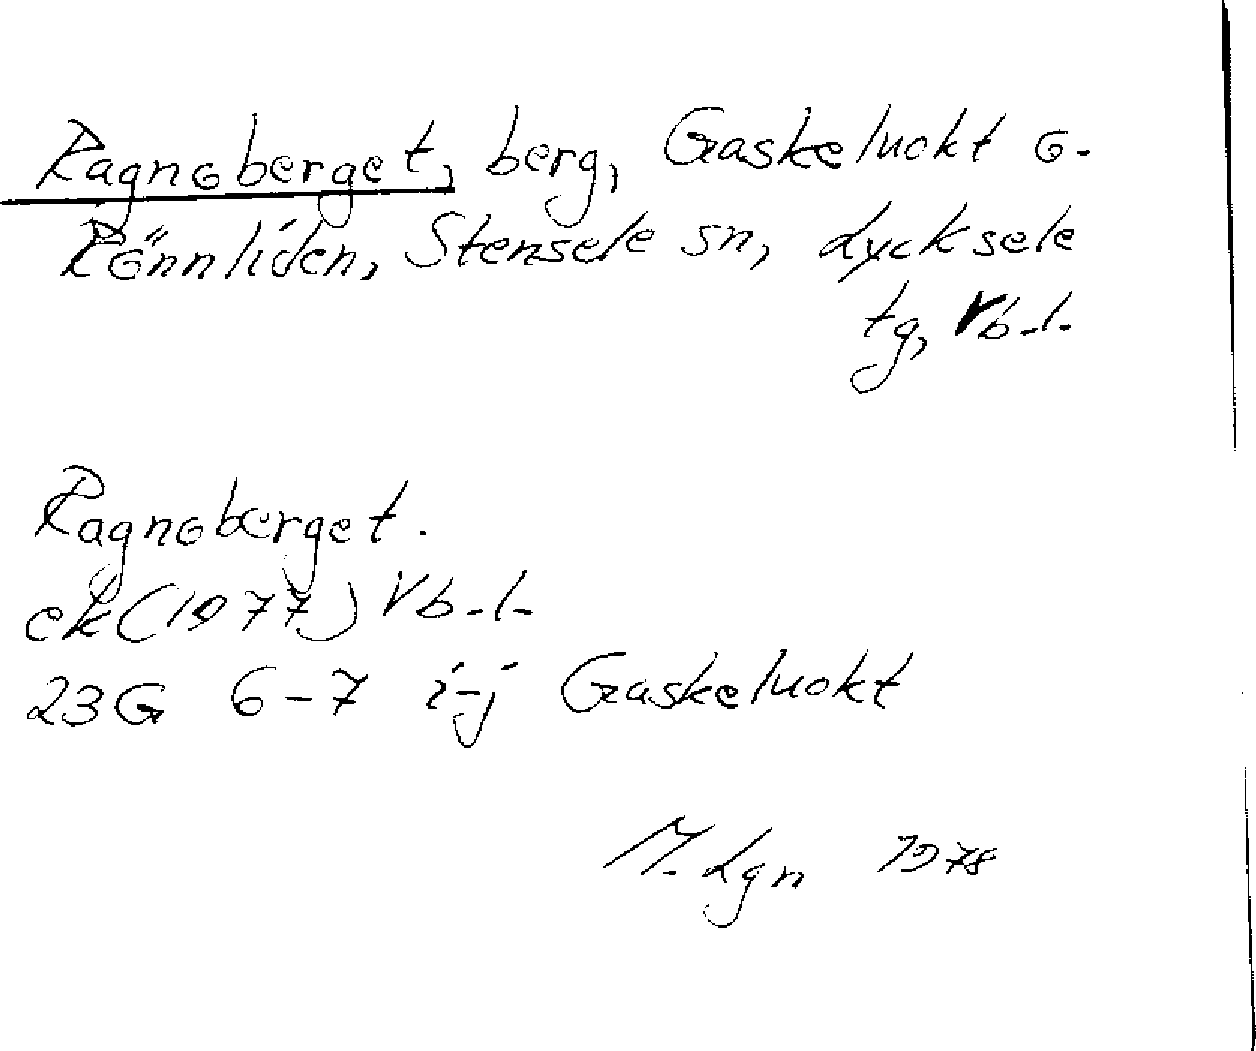 Ragnoberget, berg, Gaskeluokt o.
Rönnliden, Stensele sn, Lycksele
tg, Vb.l.
Ragnoberget.
ek (1977) Vb.l.
23G 6-7 i-j Gaskeluokt
M. Lgn 1978